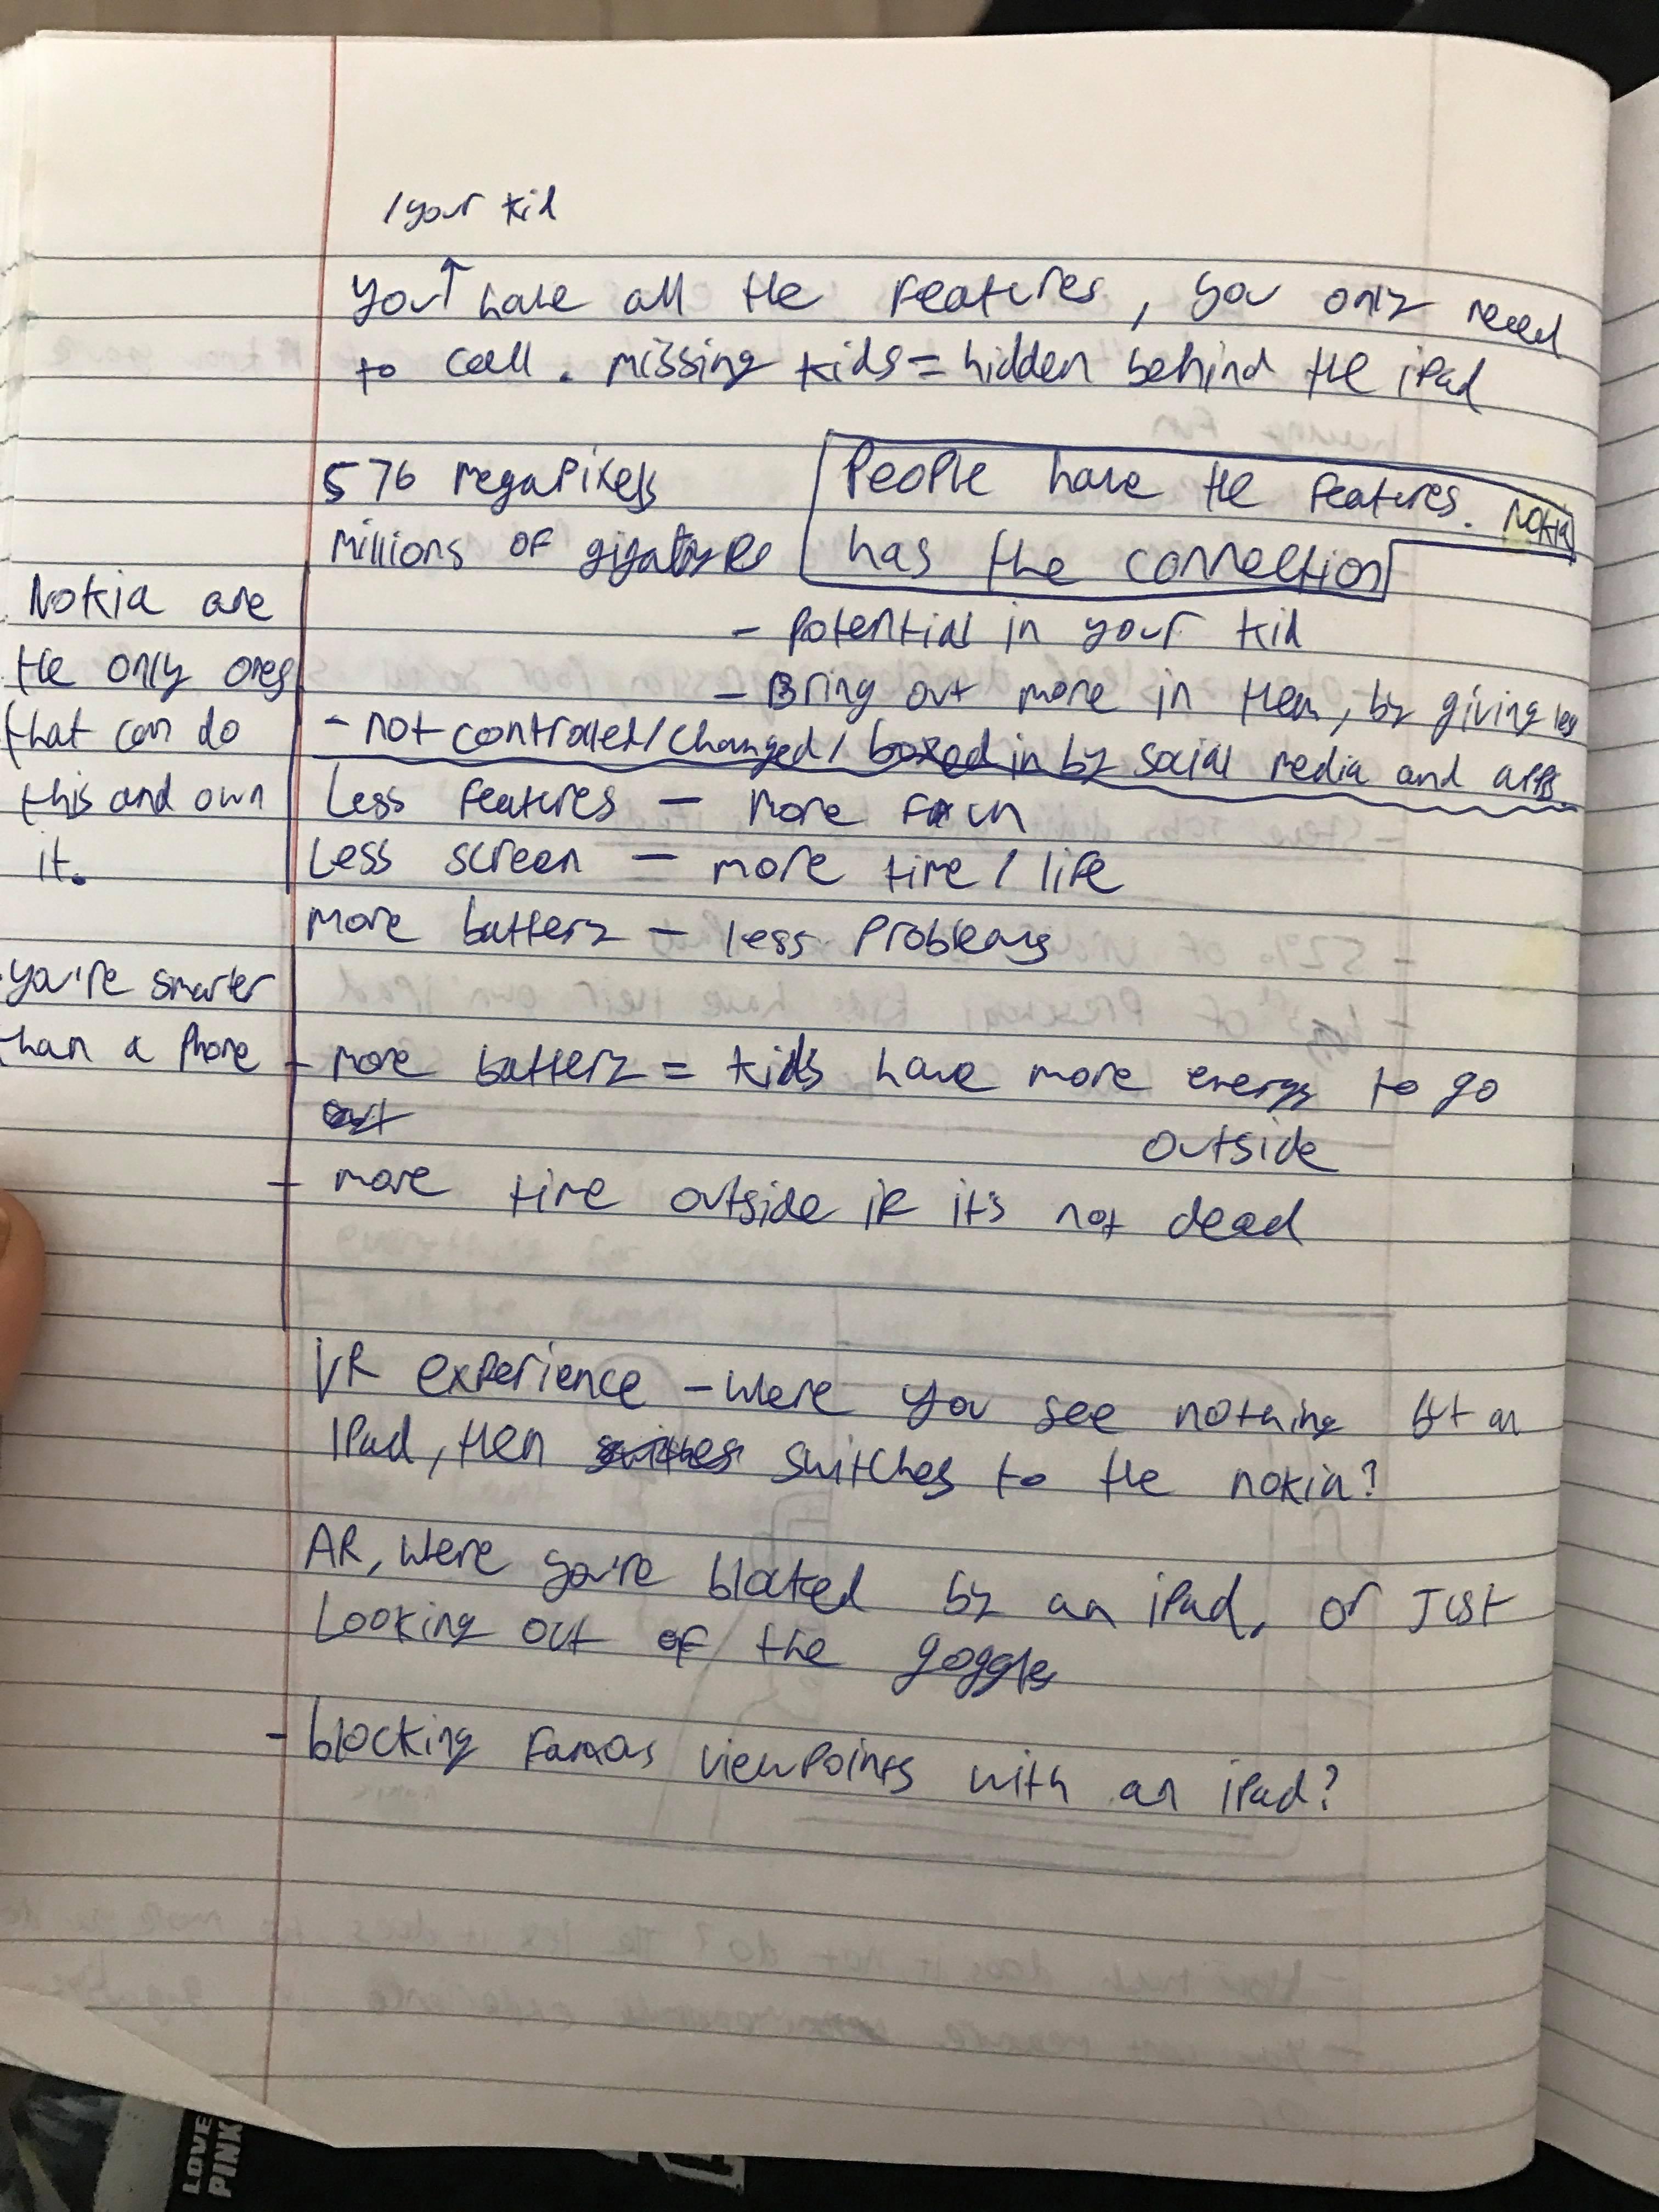 /your kid
you↑ have all the features, you only need
to call. missing kids = hidden behind the iPad
576 megapixels
millions of gigabytes
People have the features. Nokia
has the connection
- Potential in your kid
- Bring out more in them, by giving less
- not controled/changed/boxed in by social media and apps.
Nokia are
the only ones
that can do
this and own
it.
Less features - more fun
Less screen - more time / life
more battery - less problems
you're smarter
than a phone
- more battery = kids have more energy to go
out
outside
- more time outside if it's not dead
VR experience - were you see nothing but an
iPad, then switches switches to the nokia?
AR, were you're blocked by an iPad, or just
Looking out of the goggles
- blocking famous viewpoints with an iPad?
LOVE
PINK